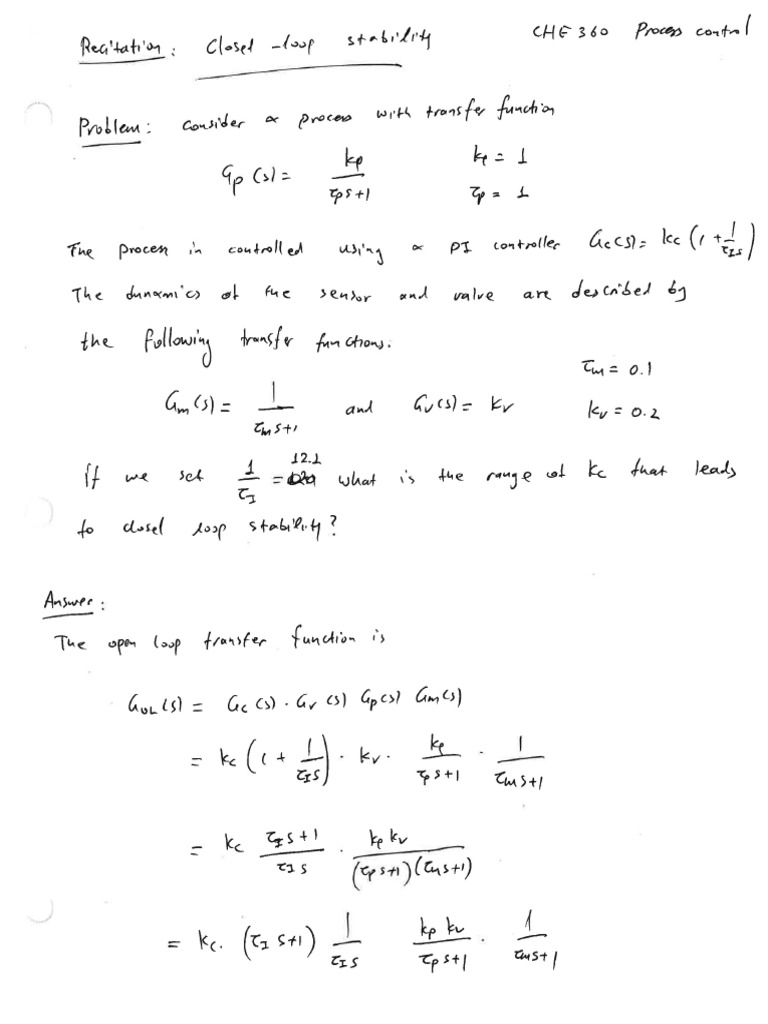 Recitation: Closed-loop stability CHE 360 Process control
Problem: consider a process with transfer function
Gp(s) = kp / (τp s+1) kp = 1
τp = 1
The process is controlled using a PI controller Gc(s) = kc (1 + 1/(τI s))
The dynamics of the sensor and valve are described by
the following transfer functions.
Gm(s) = 1 / (τm s+1) and Gv(s) = kv τm = 0.1
kv = 0.2
If we set 1/τI = 12.1 what is the range of kc that leads
to closed loop stability?
Answer:
The open loop transfer function is
GOL(s) = Gc(s) · Gv(s) Gp(s) Gm(s)
= kc (1 + 1/(τI s)) · kv · kp/(τp s+1) · 1/(τm s+1)
= kc (τI s+1)/(τI s) · kp kv/((τp s+1)(τm s+1))
= kc · (τI s+1) 1/(τI s) kp kv/(τp s+1) · 1/(τm s+1)